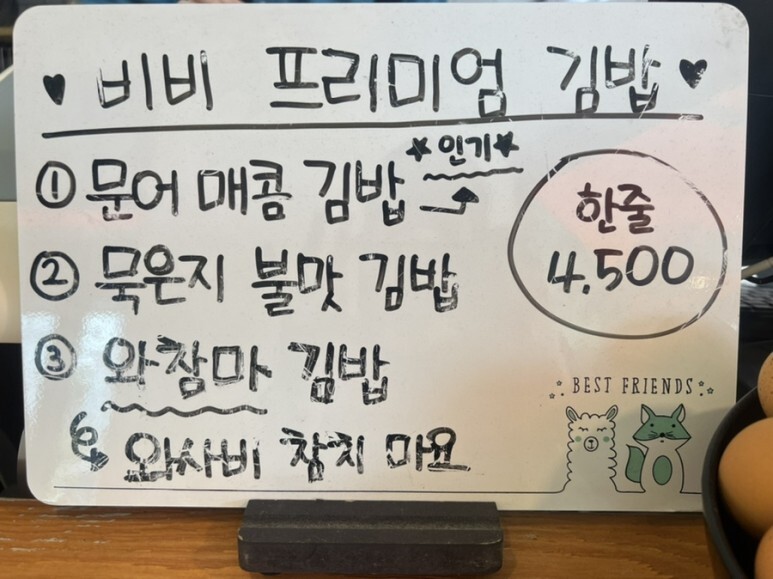 ♥ 비비 프리미엄 김밥 ♥
① 문어 매콤 김밥
★인기★
② 묵은지 불맛 김밥
③ 와참마 김밥
와사비 참치 마요
한줄
4,500
BEST FRIENDS